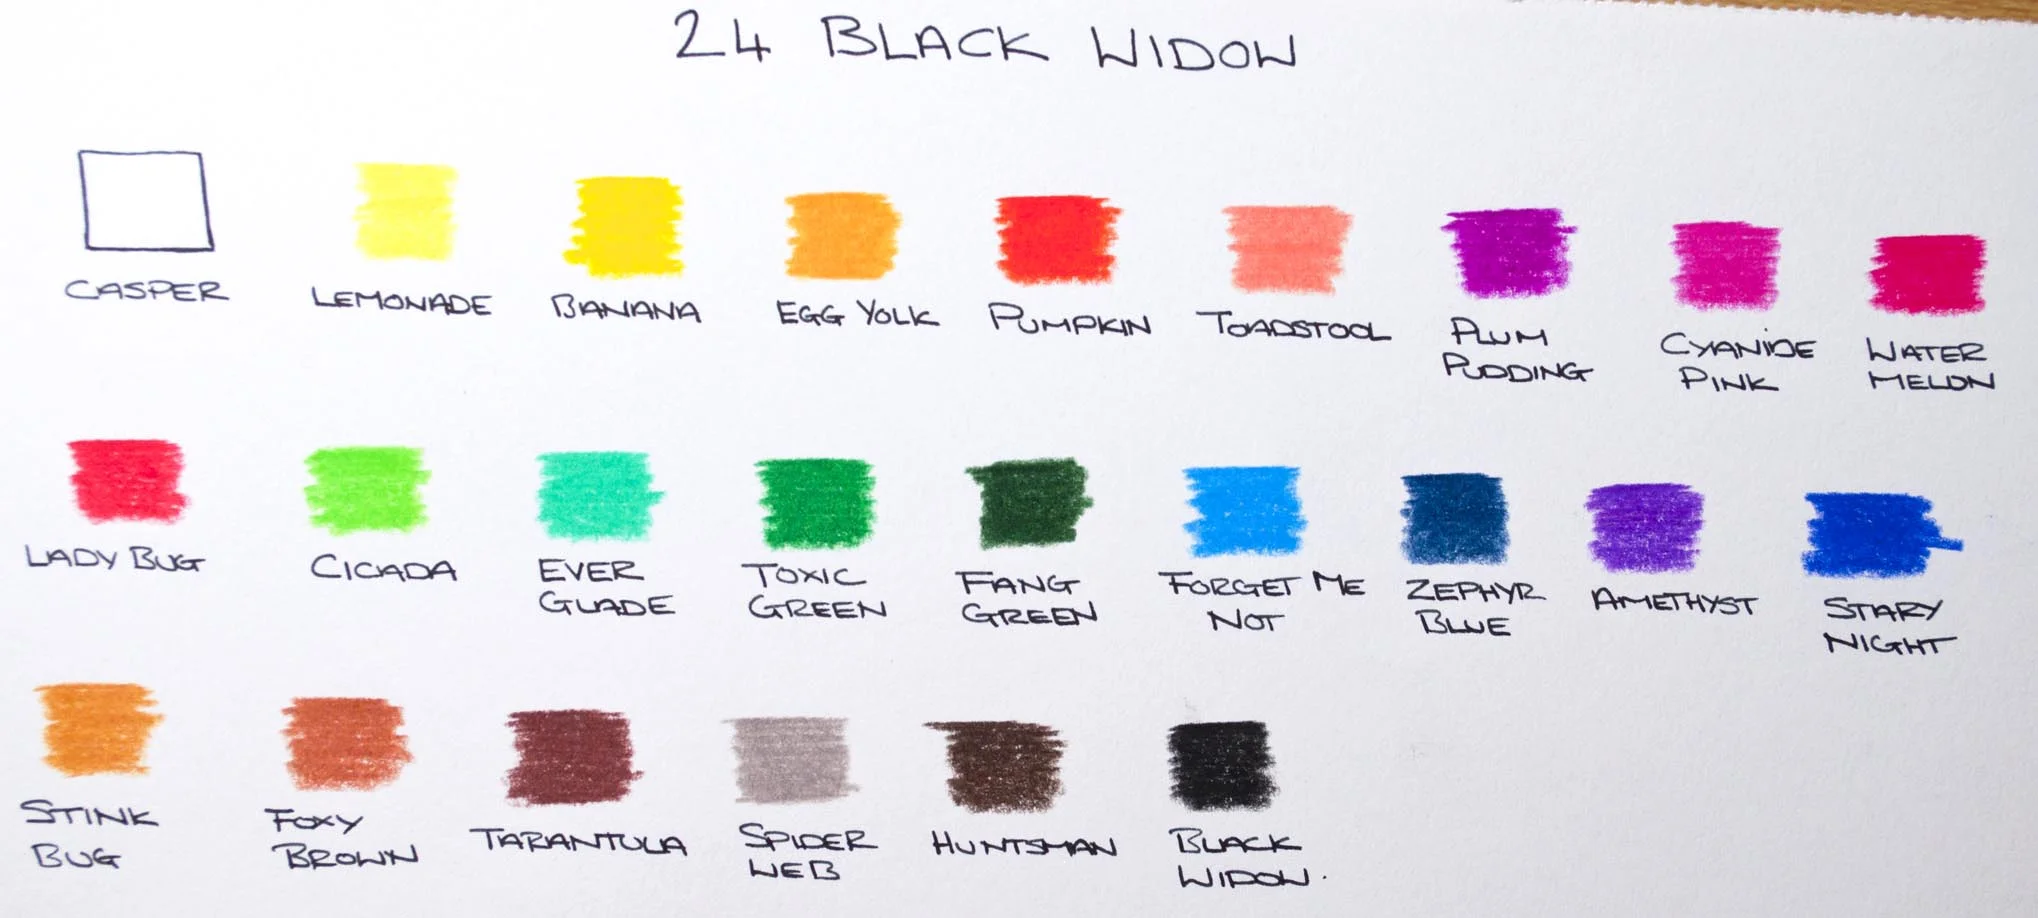 24 BLACK WIDOW
CASPER
LEMONADE
BANANA
EGG YOLK
PUMPKIN
TOADSTOOL
PLUM
PUDDING
CYANIDE
PINK
WATER
MELON
LADY BUG
CICADA
EVER
GLADE
TOXIC
GREEN
FANG
GREEN
FORGET ME
NOT
ZEPHYR
BLUE
AMETHYST
STARY
NIGHT
STINK
BUG
FOXY
BROWN
TARANTULA
SPIDER
WEB
HUNTSMAN
BLACK
WIDOW.